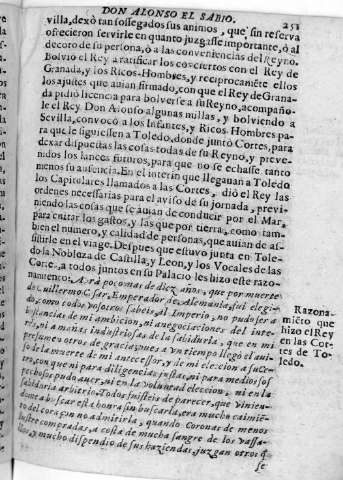 DON ALONSO EL SABIO.
251
villa, dexò tan sossegados sus animos, que sin reserva
ofrecieron servirle en quanto juzgasse importante, ò al
decoro de su persona, ò a las conveniencias del Reyno.
Bolviò el Rey a ratificar los cõciertos con el Rey de
Granada, y los Ricos-Hombres, y reciprocamẽte ellos
los ajustes que auian firmado, con que el Rey de Grana-
da pidiò licencia para bolverse a su Reyno, acompañò-
le el Rey Don Alonso algunas millas, y bolviendo a
Sevilla, convocò a los Infantes, y Ricos Hombres pa-
ra que le siguiessen a Toledo, donde juntò Cortes, para
dexar dispuestas las cosas todas de su Reyno, y preve-
nidos los lances futuros, para que no se echasse tanto
menos su ausencia. En el interin que llegauan a Toledo
los Capitulares llamados a las Cortes, diò el Rey las
ordenes necessarias para el aviso de su jornada, previ-
niendo las cosas que se auian de conducir por el Mar,
para evitar los gastos, y las que por tierra, como tam-
bien el numero, y calidad de personas, que auian de as-
sistirle en el viage. Despues que estuvo junta en Tole-
do la Nobleza de Castilla, y Leon, y los Vocales de las
Corte, a todos juntos en su Palacio les hizo este razo-
namiento: Avrà poco mas de diez años, que por muerte
de Guillermo Cesar, Emperador de Alemania, fui elegi-
do, como todos vosotros sabeis, al Imperio, no pudo ser a
instancias de mi ambicion, ni a negociaciones del inte-
rès, ni a mañas industriosas de la sabiduria, que en mi
presumen otros de gracias, pues a vn tiempo llegò el avi-
so de la muerte de mi antecessor, y de mi eleccion a suCe-
tro, con que ni para diligencias justas, ni para medios sos-
pechosos pudo auer, ni en la voluntad eleccion, ni en la
sabiduria arbitrio. Todos fuisteis de parecer, que vinien-
dome a buscar esta honra sin buscarla, era mucho caimiẽ-
to del coraçon no admitirla, quando Coronas de menos
lustre compradas, a costa de mucha sangre de los vassa-
llos, y mucho dispendio de sus haziendas, juzgan otros q̃
se
Razona-
miẽto que
hizo el Rey
en las Cor-
tes de To-
ledo.